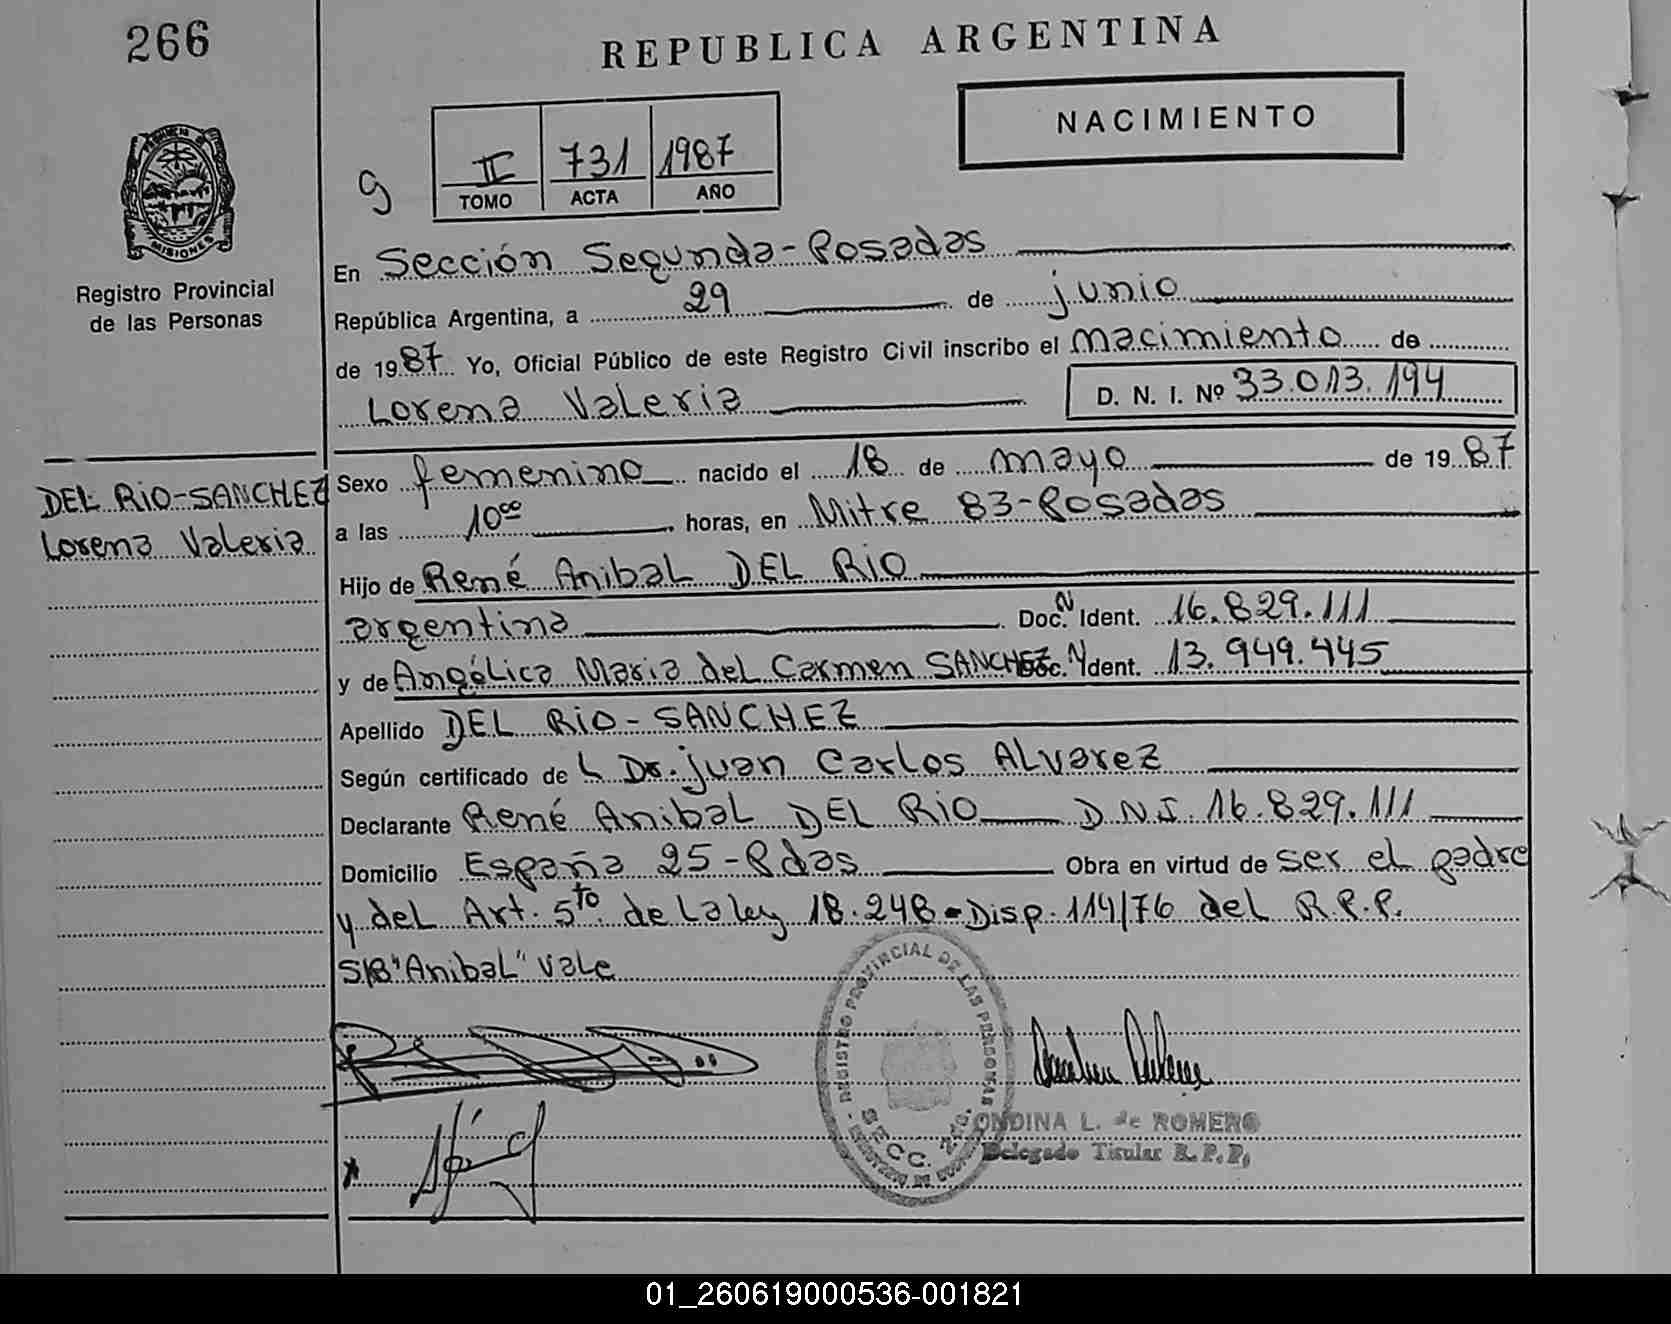 266
REPUBLICA ARGENTINA
NACIMIENTO
9
II 731 1987
TOMO ACTA AÑO
PROVINCIA DE
MISIONES
Registro Provincial
de las Personas
En Sección Segunda-Posadas
República Argentina, a 29 de junio
de 1987 Yo, Oficial Público de este Registro Civil inscribo el nacimiento de
Lorena Valeria D. N. I. Nº 33.013.194
DEL RIO-SANCHEZ
Lorena Valeria
Sexo femenino nacido el 18 de mayo de 1987
a las 10°° horas, en Mitre 83-Posadas
Hijo de René Anibal DEL RIO
argentina Doc. N Ident. 16.829.111
y de Angélica Maria del Carmen SANCHEZ Doc. N Ident. 13.949.445
Apellido DEL RIO-SANCHEZ
Según certificado de L Dr. juan Carlos ALvarez
Declarante René Anibal DEL RIO D.N.I. 16.829.111
Domicilio España 25-Pdas Obra en virtud de ser el padre
y del Art. 5to de la ley 18.248-Disp. 114/76 del R.P.P.
S/B "Anibal" Vale
REGISTRO PROVINCIAL DE LAS PERSONAS
SECC. 2da.
ONDINA L. de ROMERO
Delegado Titular R.P.P.
01_260619000536-001821